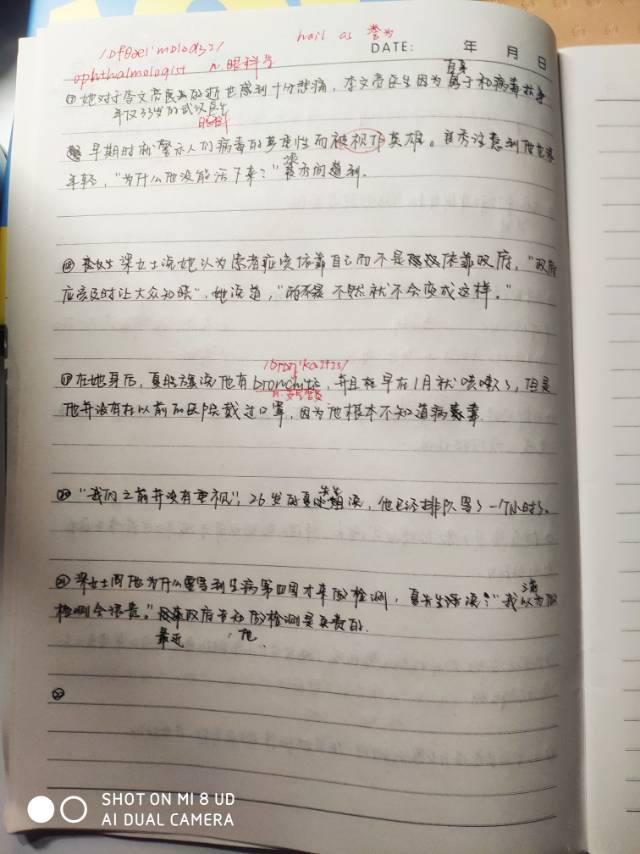 /ˌɒfθælˈmɒlədʒɪ/ hail as 誉为
DATE: 年 月 日
ophthalmologist n.眼科学
自身
她对于李文亮医生的逝世感到十分悲痛，李文亮医生因为勇于和病毒抗争
年仅33岁的武汉医生
眼科
早期时就警示人们病毒的严重性而被视作英雄。
年轻，"为什么他没能活下来？" 问道
梁女士说她认为患者应该依靠自己而不是依靠政府，"政府
应该及时让大众知晓"，她说道，"不然就不会变成这样。"
/brɒŋˈkaɪtɪs/
在她身后，夏 说他有bronchitis，并且在早在1月就咳嗽了，但是
n.支气管炎
他并没有在以前的医院戴过口罩，因为他根本不知道病毒
"我们之前并没有重视"，26岁的夏先生说，他已经排队等了一个小时了。
梁女士问他为什么要等到生病第四周才来做检测，夏先生说："我以为做
检测会很贵。" 政府 检测是免费的.
最近 他
SHOT ON MI 8 UD
AI DUAL CAMERA